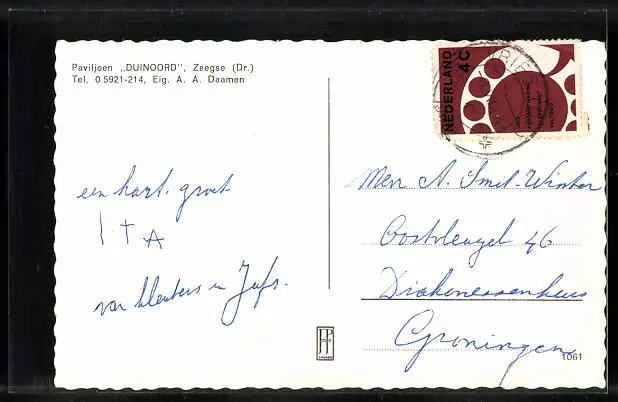 Paviljoen „DUINOORD", Zeegse (Dr.)
Tel. 0 5921-214, Eig. A. A. Daamen
NEDERLAND
4C
een hart. groet
van kleuters en Jufs.
Mevr A. Smit-Winter
Oostvleugel 46
Diakonessenhuis
Groningen
JP
1061